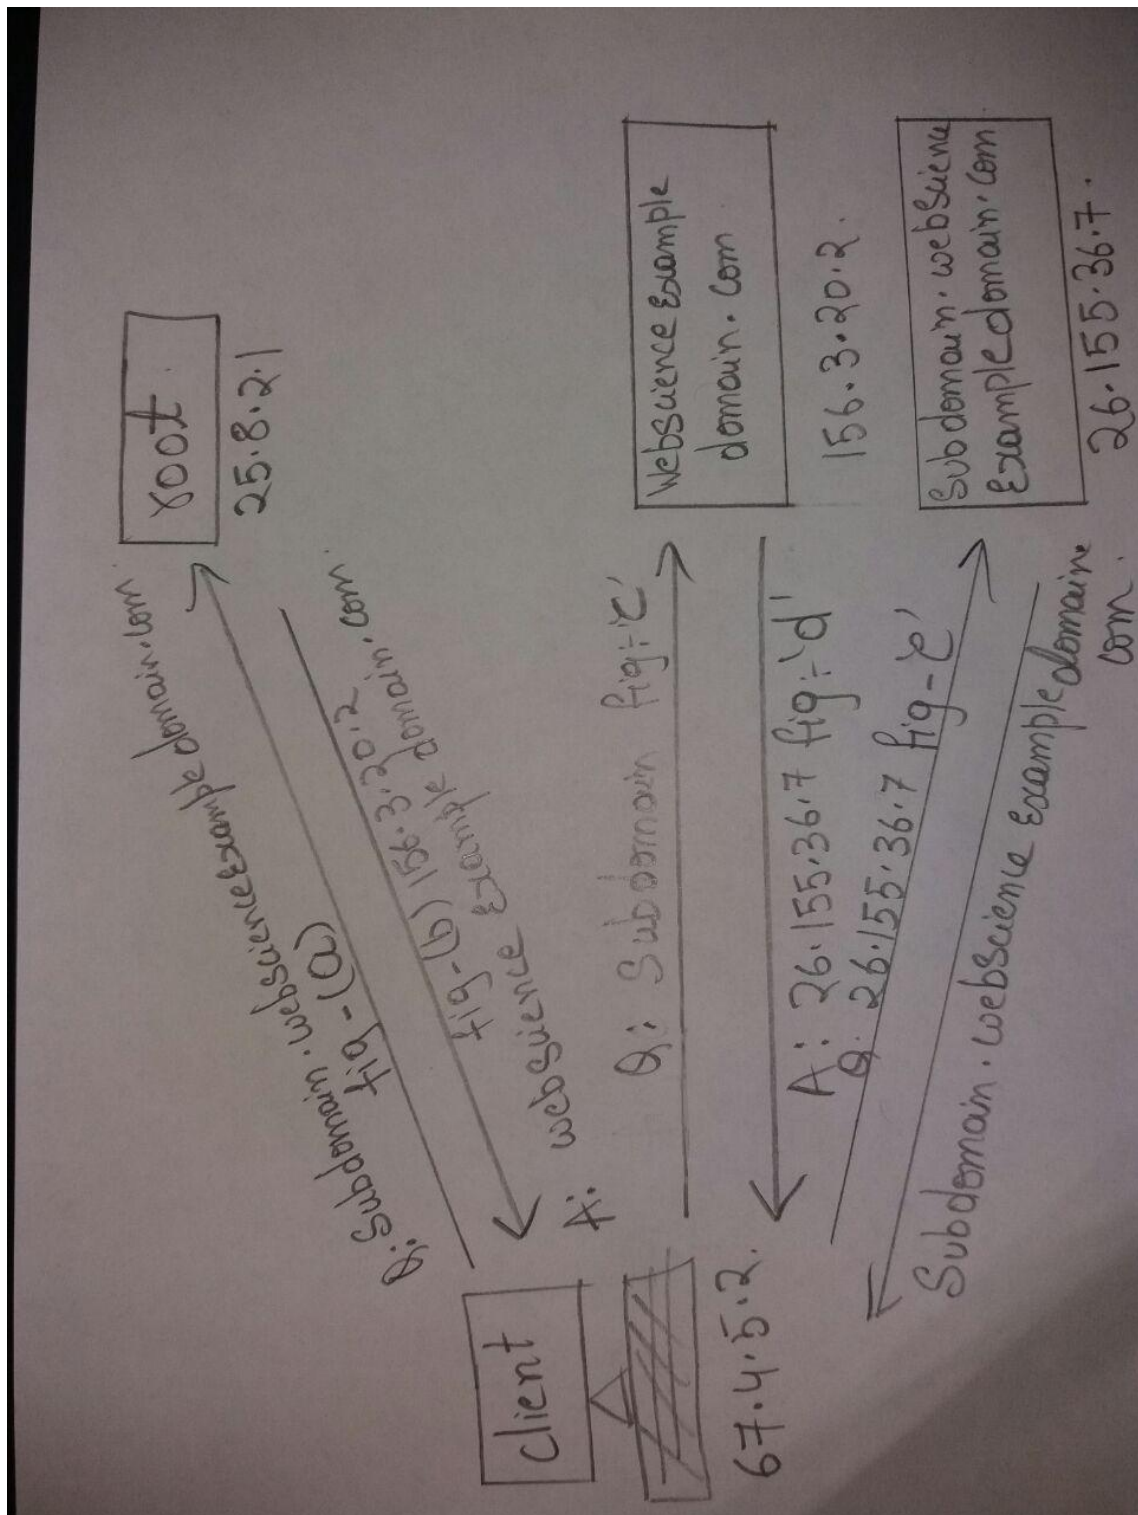 root
25.8.2.1
Q: Subdomain.webscienceExampledomain.com
fig-(a)
fig-(b) 156.3.20.2
A: webscience Example domain.com.
client
67.4.5.2.
Q: Subdomain fig:-'c'
Webscience Example
domain.com
156.3.20.2.
A: 26.155.36.7 fig:-'d'
Q: 26.155.36.7 fig-'e'
Subdomain.webscience
Exampledomain.com
26.155.36.7.
Subdomain.webscience Exampledomaine
com.